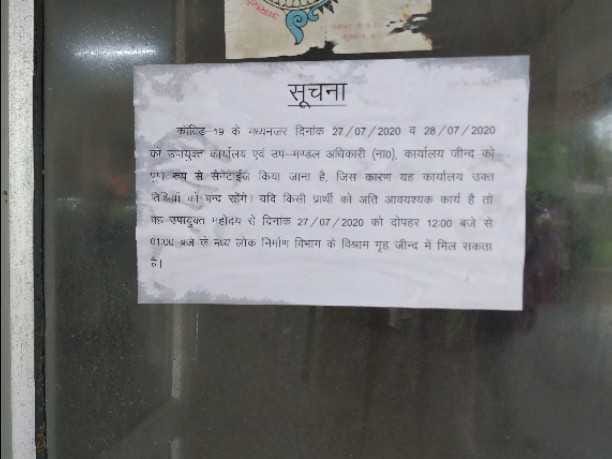 सूचना
कोविड-19 के मध्यनजर दिनांक 27/07/2020 व 28/07/2020
को उपायुक्त कार्यालय एवं उप-मण्डल अधिकारी (ना0), कार्यालय जीन्द को
रूप से सैनेटाईज किया जाना है, जिस कारण यह कार्यालय उक्त
को बन्द रहेंगे। यदि किसी प्रार्थी को अति आवयश्यक कार्य है तो
वह उपायुक्त महोदय से दिनांक 27/07/2020 को दोपहर 12:00 बजे से
01:00 बजे के मध्य लोक निर्माण विभाग के विश्राम गृह जीन्द में मिल सकता
है।